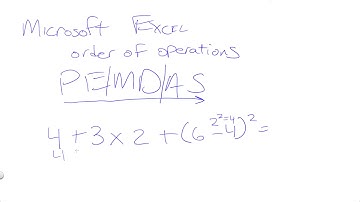 Microsoft Excel
order of operations
PE/MD/AS
2²=4
4 + 3 × 2 + (6 - 4)² =
4 +